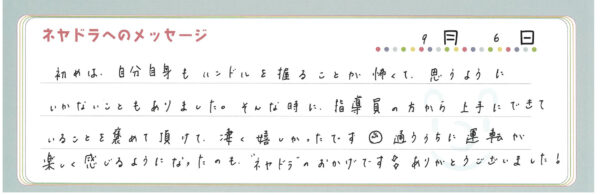 ネヤドラへのメッセージ
9月 6日
初めは、自分自身もハンドルを握ることが怖くて、思うように
いかないこともありました。そんな時に、指導員の方から上手にできて
いることを褒めて頂けて、凄く嬉しかったです 通ううちに運転が
楽しく感じるようになったのも、"ネヤドラ"のおかげです ありがとうございました!